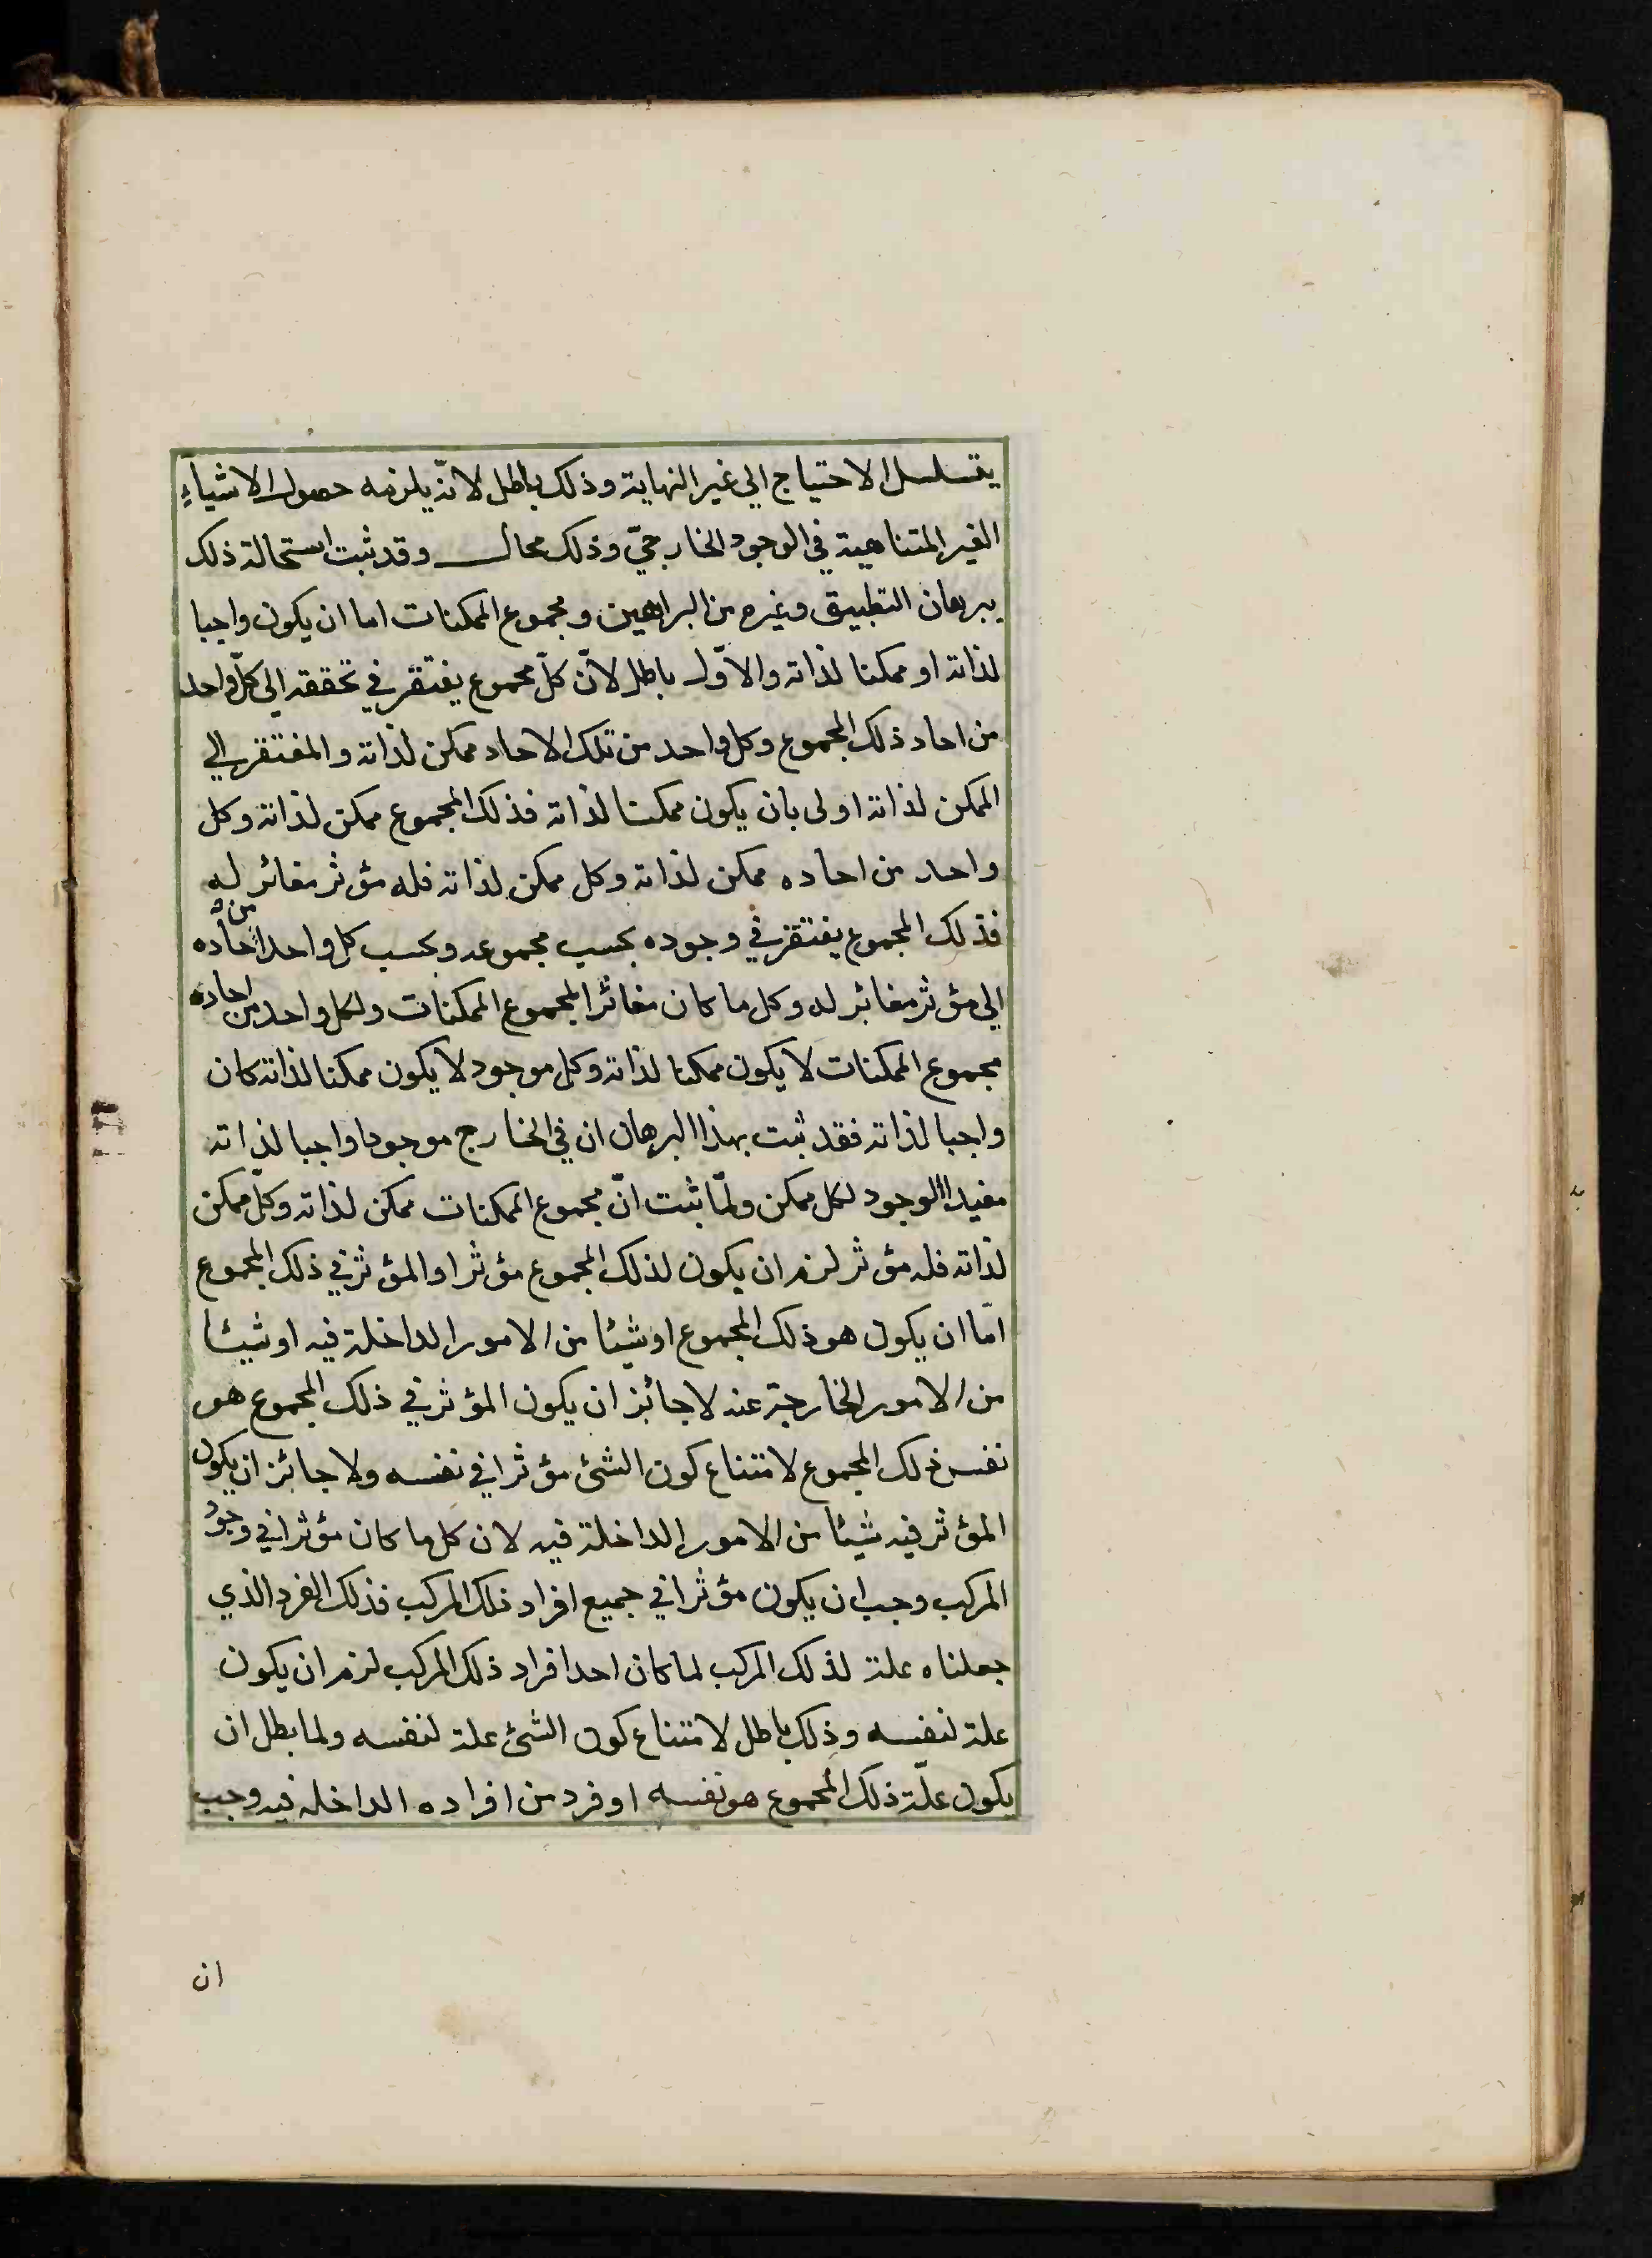 يتسلسل الاحتياج الي غير النهاية وذلك باطل لانّه يلزمه حصول الاشياءِ
الغير المتناهية في الوجود الخارجيّ وذلك محال وقد ثبت استحالة ذلك
ببرهان التطبيق وغيره من البراهين ومجموع الممكنات اما ان يكون واجبا
لذاته او ممكنا لذاته والاوّل باطل لانّ كلّ مجموع يفتقر في تحققه الى كلّ واحد
من احاد ذلك المجموع وكل واحد من تلك الاحاد ممكن لذاته والمفتقر الي
الممكن لذاته اولى بان يكون ممكنا لذاته فذلك المجموع ممكن لذاته وكل
واحد من احاده ممكن لذاته وكل ممكن لذاته فله مؤثر مغائر له
فذلك المجموع يفتقر في وجوده بحسب مجموعه وبحسب كل واحد من احاده
الي مؤثر مغائر له وكل ما كان مغائرا لمجموع الممكنات ولكل واحد من احاده
مجموع الممكنات لا يكون ممكنا لذاته وكل موجود لا يكون ممكنا لذاته كان
واجبا لذاته فقد ثبت بهذا البرهان ان في الخارج موجودا واجبا لذاته
مفيدا الوجود لكل ممكن ولمّا ثبت انّ مجموع الممكنات ممكن لذاته وكلّ ممكن
لذاته فله مؤثر لزم ان يكون لذلك المجموع مؤثرا والمؤثر في ذلك المجموع
امّا ان يكون هو ذلك المجموع او شيئا من الامور الداخلة فيه او شيئا
من الامور الخارجة عنه لا جائز ان يكون المؤثر في ذلك المجموع هو
نفس ذلك المجموع لامتناع كون الشئ مؤثرا في نفسه ولا جائز ان يكون
المؤثر فيه شيئا من الامور الداخلة فيه لان كل ما كان مؤثرا في وجود
المركب وجب ان يكون مؤثرا في جميع افراد ذلك المركب فذلك الفرد الذي
جعلناه علة لذلك المركب لما كان احد افراد ذلك المركب لزم ان يكون
علة لنفسه وذلك باطل لامتناع كون الشئ علة لنفسه ولما بطل ان
يكون علّة ذلك المجموع هو نفسه او فرد من افراده الداخلة فيه وجب
ان